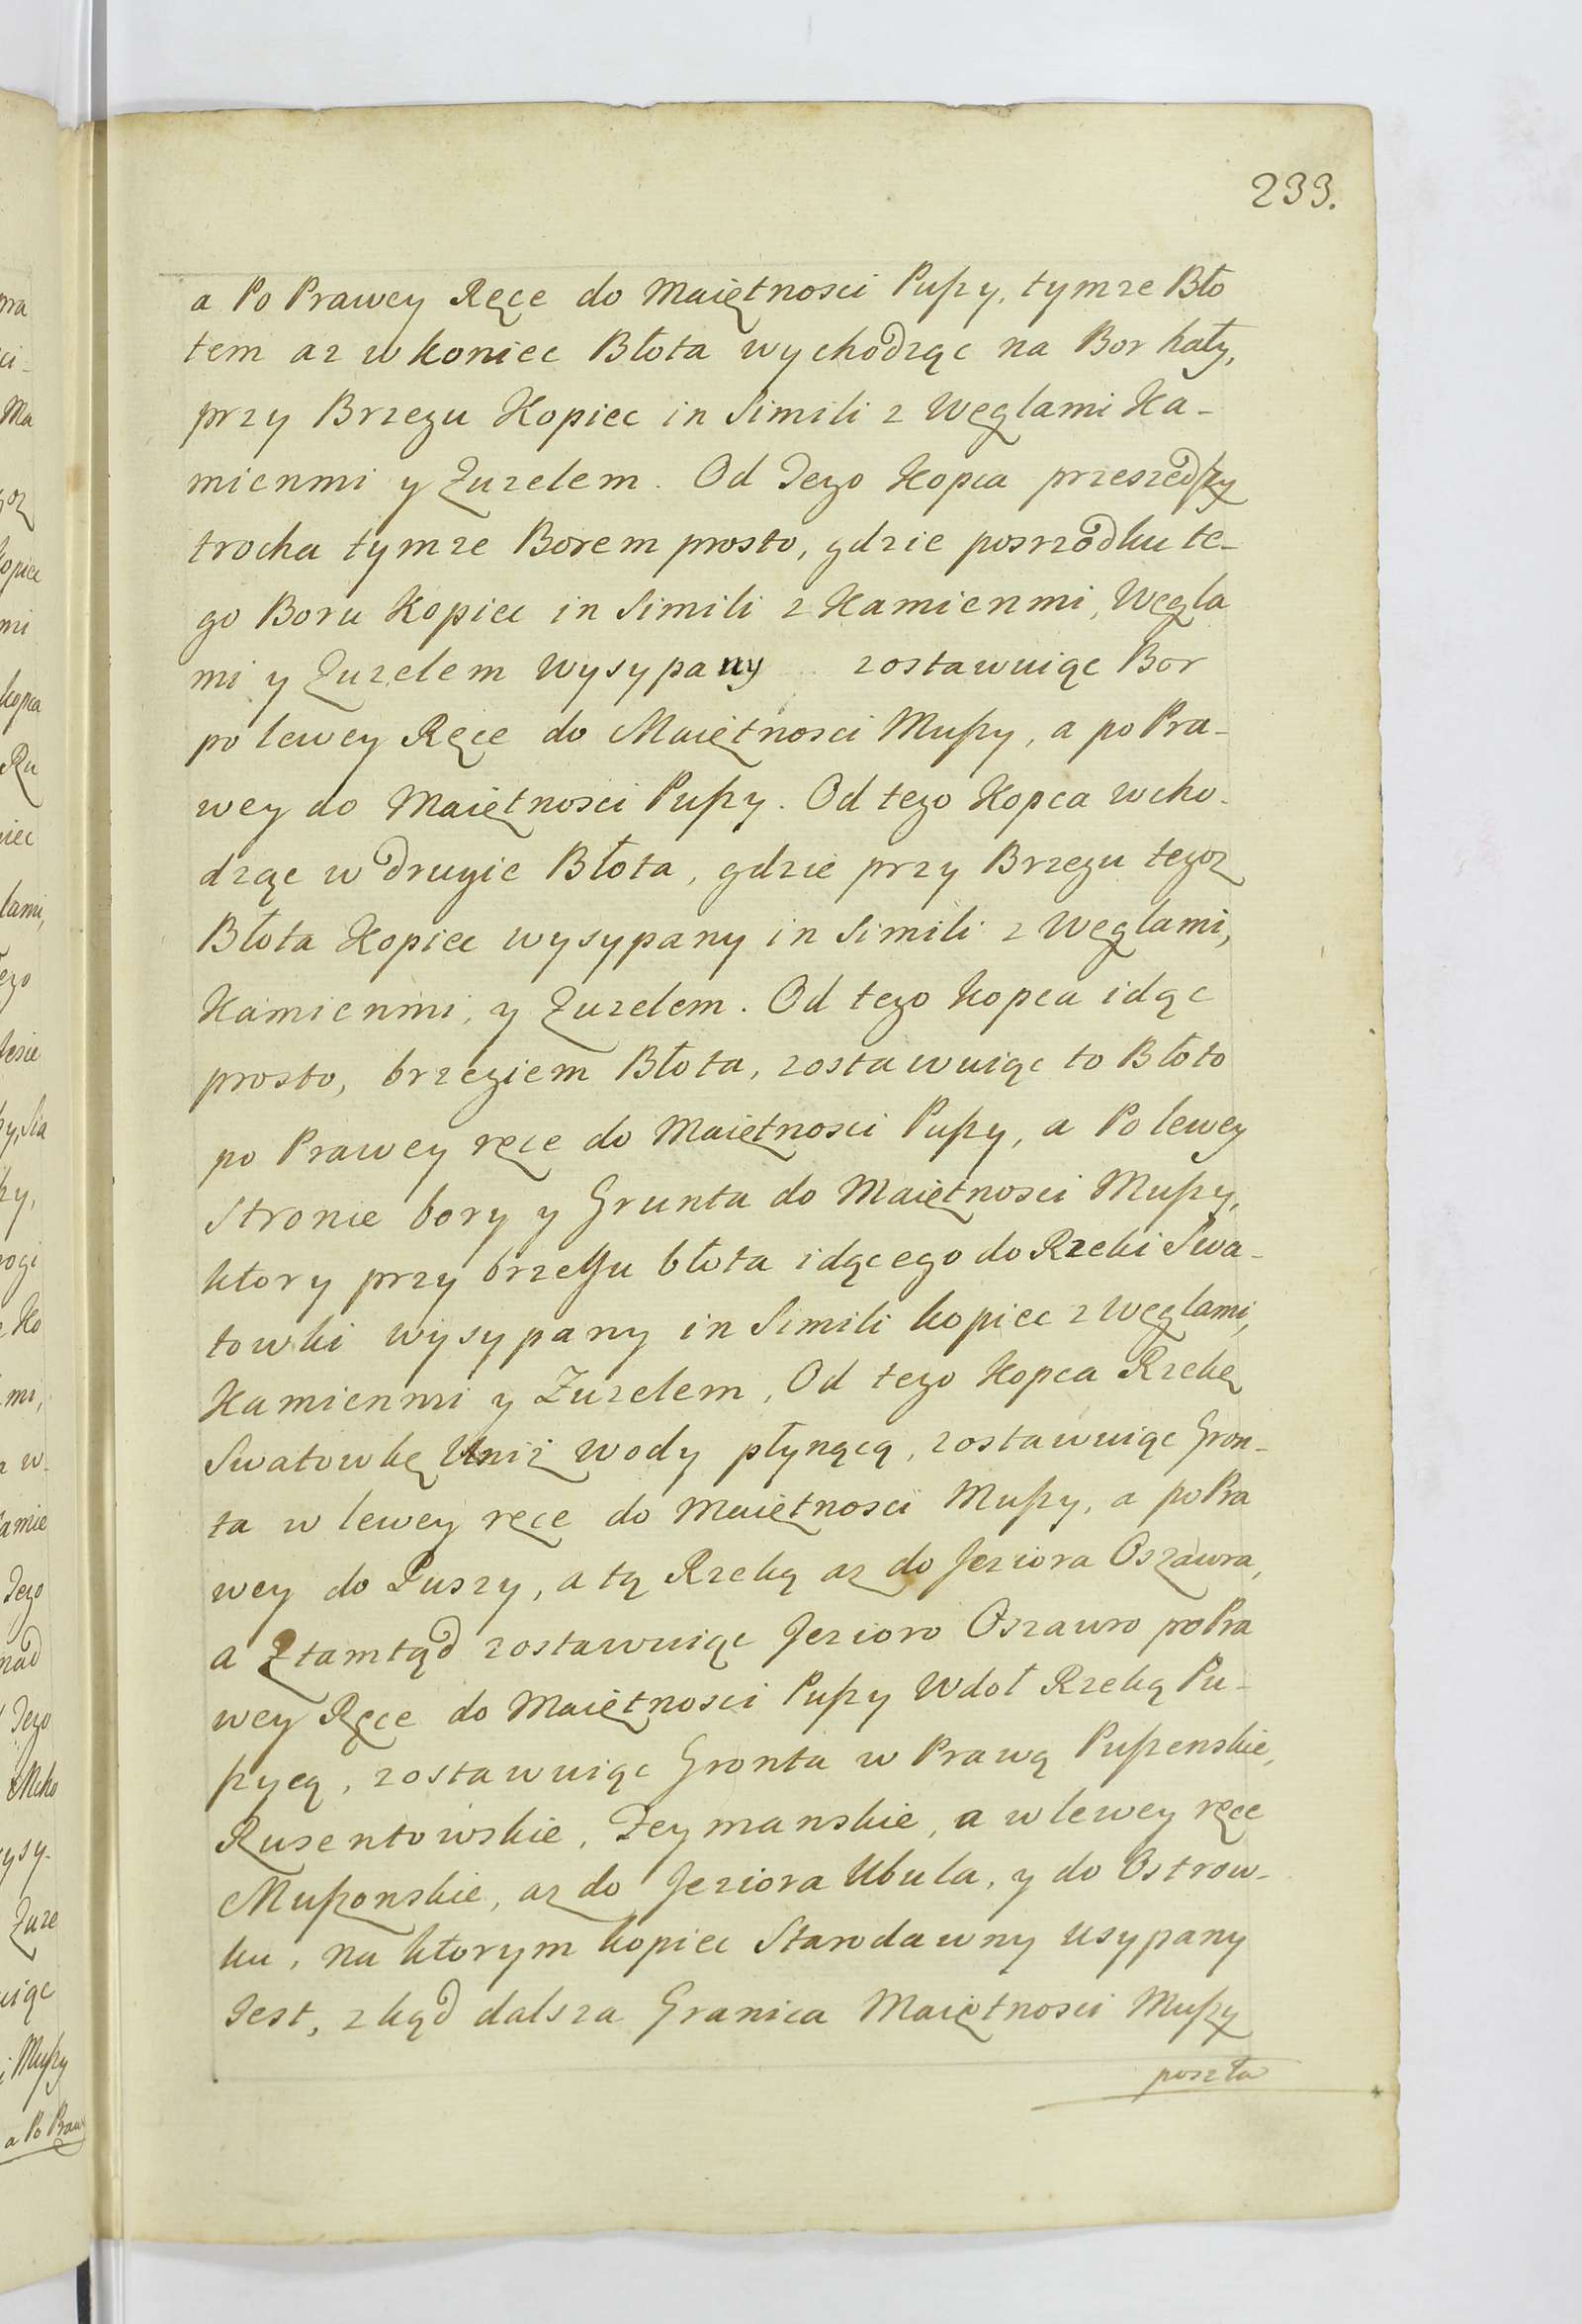 233.
a Po Prawey Ręce do Maiętnosci Puszy, tymze Bło
tem az w koniec Błota wychodząc na Bor hały,
przy Brzegu Kopiec in Simili z Węglami Ka-
mienmi y Zuzelem. Od Tego Kopca przeszedszy
trocha tymze Borem prosto, gdzie posrzodku te-
go Boru Kopiec in Simili z Kamienmi, Węgla
mi y Zuzelem wysypany zostawuiąc Bor
po lewey Ręce do Maiętnosci Muszy, a po Pra-
wey do Maiętnosci Puszy. Od tego Kopca wcho-
dząc w drugie Błota, gdzie przy Brzegu tegoz
Błota Kopiec wysypany in Simili z Węglami,
Kamienmi, y Zuzelem. Od tego Kopca idąc
prosto, brzegiem Błota, zostawuiąc to Błoto
po Prawey ręce do Maiętnosci Puszy, a Po lewey
Stronie bory y Grunta do Maiętnosci Muszy,
ktory przy brzegu błota idącego do Rzeki Swa-
towki wysypany in Simili kopiec z Węglami,
Kamienmi y Zuzelem, Od tego Kopca Rzekę
Swatowkę Uniz wody płynącą, zostawuiąc Gron-
ta w lewey ręce do Maiętnosci Muszy, a po Pra
wey do Puszy, a tą Rzeką az do Jeziora Oszawra,
a Ztamtąd zostawuiąc Jezioro Oszawro po Pra
wey Ręce do Maiętnosci Puszy Wdoł Rzeką Pu-
szycą, zostawuiąc Gronta w Prawą Puszenskie,
Rusentowskie, Zeymanskie, a w lewey ręce
Muszonskie, az do Jeziora Ubula, y do Ostrow-
ku, na ktorym kopiec Starodawny usypany
Jest, zkąd dalsza Granica Maiętnosci Muszy
poszła